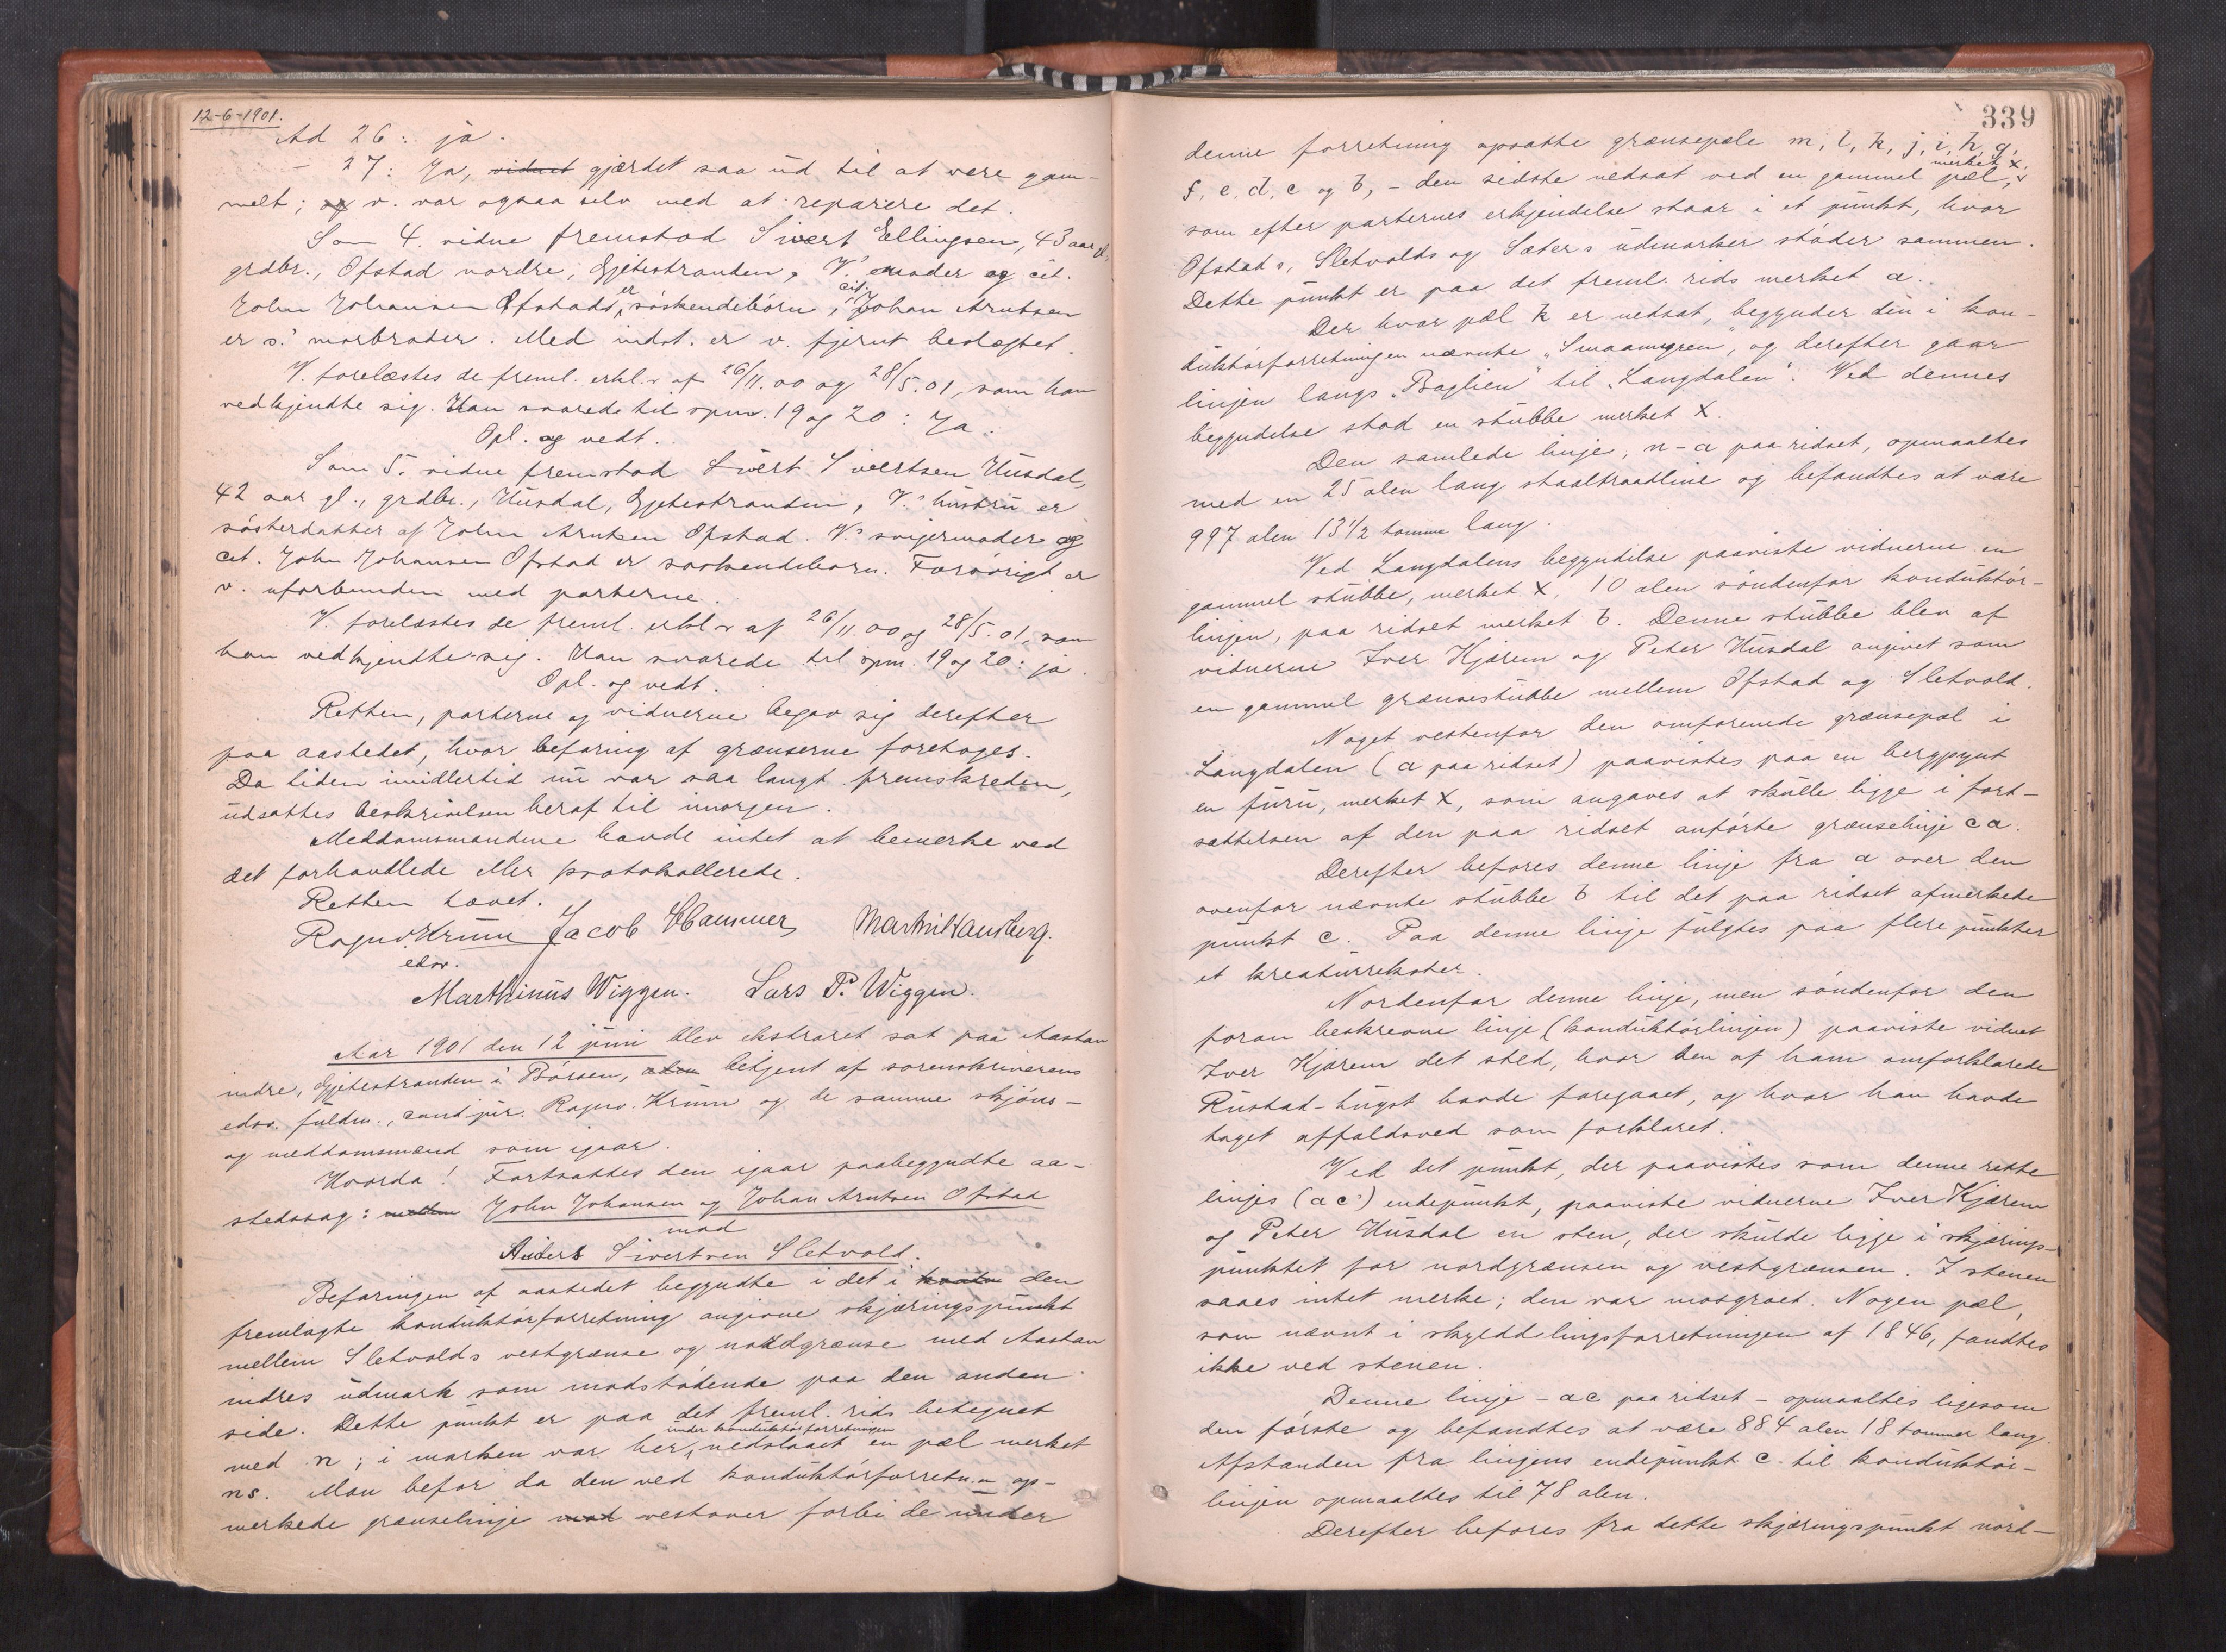 12-6-1901.
Ad 26: ja.
- 27: Ja, vidnet gjærdet saa ud til at være gam-
melt; og v. var ogsaa selv med at reparere det.
Som 4. vidne fremstod Sivert Ellingsen, 43 aar gl.,
grdbr., Ofstad nordre, Gjeitestranden, V.s moder og cit.
John Johansen Ofstads, er söskendebörn, cit. Johan Arntsen
er s.s morbroder. Med indst. er v. fjernt beslægtet.
V. forelæstes de freml. erkl.r af 26/11.00 og 28/5.01, som han
vedkjendte sig. Han svarede til spm. 19 og 20: Ja.
Opl. og vedt.
Som 5. vidne fremstod Sivert Sivertsen Husdal,
42 aar gl., grdbr., Husdal, Gjeitestranden, V.s hustru er
sösterdatter af John Arntsen Ofstad. V.s svigermoder og
cit. John Johansen Ofstad er söskendebörn. Forövrigt er
v. uforbunden med parterne.
V. forelæstes de freml. erkl.r af 26/11.00 og 28/5.01, som
han vedkjendte sig. Han svarede til spm. 19 og 20: ja.
Opl. og vedt.
Retten, parterne og vidnerne begav sig derefter
paa aastedet, hvor befaring af grænserne foretoges.
Da tiden imidlertid nu var saa langt fremskreden,
udsattes beskrivelsen heraf til imorgen.
Meddomsmændene havde intet at bemerke ved
det forhandlede eller protokollerede.
Retten hævet.
Ragnv. Krum Jacob Hammer Martin Hansberg.
edsv.
Marthinus Wiggen. Lars P. Wiggen.
Aar 1901 den 12 juni blev ekstraret sat paa Aastan
indre, Gjeitestranden i Börsen, betjent af sorenskriverens
edsv. fuldm., cand. jur. Ragnv. Krum og de samme skjöns-
og meddomsmænd som igaar.
Hvorda! Fortsattes den igaar paabegyndte aa-
stedssag: mellem John Johansen og Johan Arntsen Ofstad
mod
Anders Sivertsen Sletvold.
Befaringen af aastedet begyndte i det i den
fremlagte konduktörforretning angivne skjæringspunkt
mellem Sletvolds vestgrænse og nordgrænse med Aastan
indres udmark som modstödende paa den anden
side. Dette punkt er paa det freml. rids betegnet
under konduktörforretningen
med n; i marken var her nedslaaet en pæl merket
ns. Man befor da den ved konduktörforretn.n op-
merkede grænselinje mod vestover forbi de under
339
denne forretning opsatte grænsepæle m, l, k, j, i, h, g,
merket x.
f, e, d, c og b, - den sidste nedsat ved en gammel pæl,
som efter parternes erkjendelse staar i et punkt, hvor
Ofstads, Sletvolds og Sæters udmarker stöder sammen.
Dette punkt er paa det freml. rids merket a.
Der hvor pæl k er nedsat, begynder den i kon-
duktörforretningen nævnte "Smaamyren", og derefter gaar
linjen langs "Baglien" til "Langdalen". Ved dennes
begyndelse stod en stubbe merket x.
Den samlede linje, n-a paa ridset, opmaaltes
med en 25 alen lang staaltraadline og befandtes at være
997 alen 13½ tomme lang.
Ved Langdalens begyndelse paaviste vidnerne en
gammel stubbe, merket x, 10 alen söndenfor konduktör-
linjen, paa ridset merket b. Denne stubbe blev af
vidnerne Iver Kjærem og Peter Husdal angivet som
en gammel grænsestubbe mellem Ofstad og Sletvold.
Noget vestenfor den omforenede grænsepæl i
Langdalen (a paa ridset) paavistes paa en bergpynt
en furu, merket x, som angaves at skulle ligge i fort-
sættelsen af den paa ridset anförte grænselinje c a.
Derefter befores denne linje fra a over den
ovenfor nævnte stubbe b til det paa ridset afmerkede
punkt c. Paa denne linje fulgtes paa flere punkter
et kreaturrekster.
Nordenfor denne linje, men söndenfor den
foran beskrevne linje (konduktörlinjen) paaviste vidnet
Iver Kjærem det sted, hvor den af ham omforklarede
Rustad-hugst havde foregaaet, og hvor han havde
taget affaldsved som forklaret.
Ved det punkt, der paavistes som denne rette
linjes (a c's) endepunkt, paaviste vidnerne Iver Kjærem
og Peter Husdal en sten, der skulde ligge i skjærings-
punktet for nordgrænsen og vestgrænsen. I stenen
saaes intet merke; den var mosgroet. Nogen pæl,
som nævnt i skylddelingsforretningen af 1846, fandtes
ikke ved stenen.
Denne linje - a c paa ridset - opmaaltes ligesom
den förste og befandtes at være 884 alen 18 tommer lang.
Afstanden fra linjens endepunkt c til konduktör-
linjen opmaaltes til 78 alen.
Derefter befores fra dette skjæringspunkt nord-